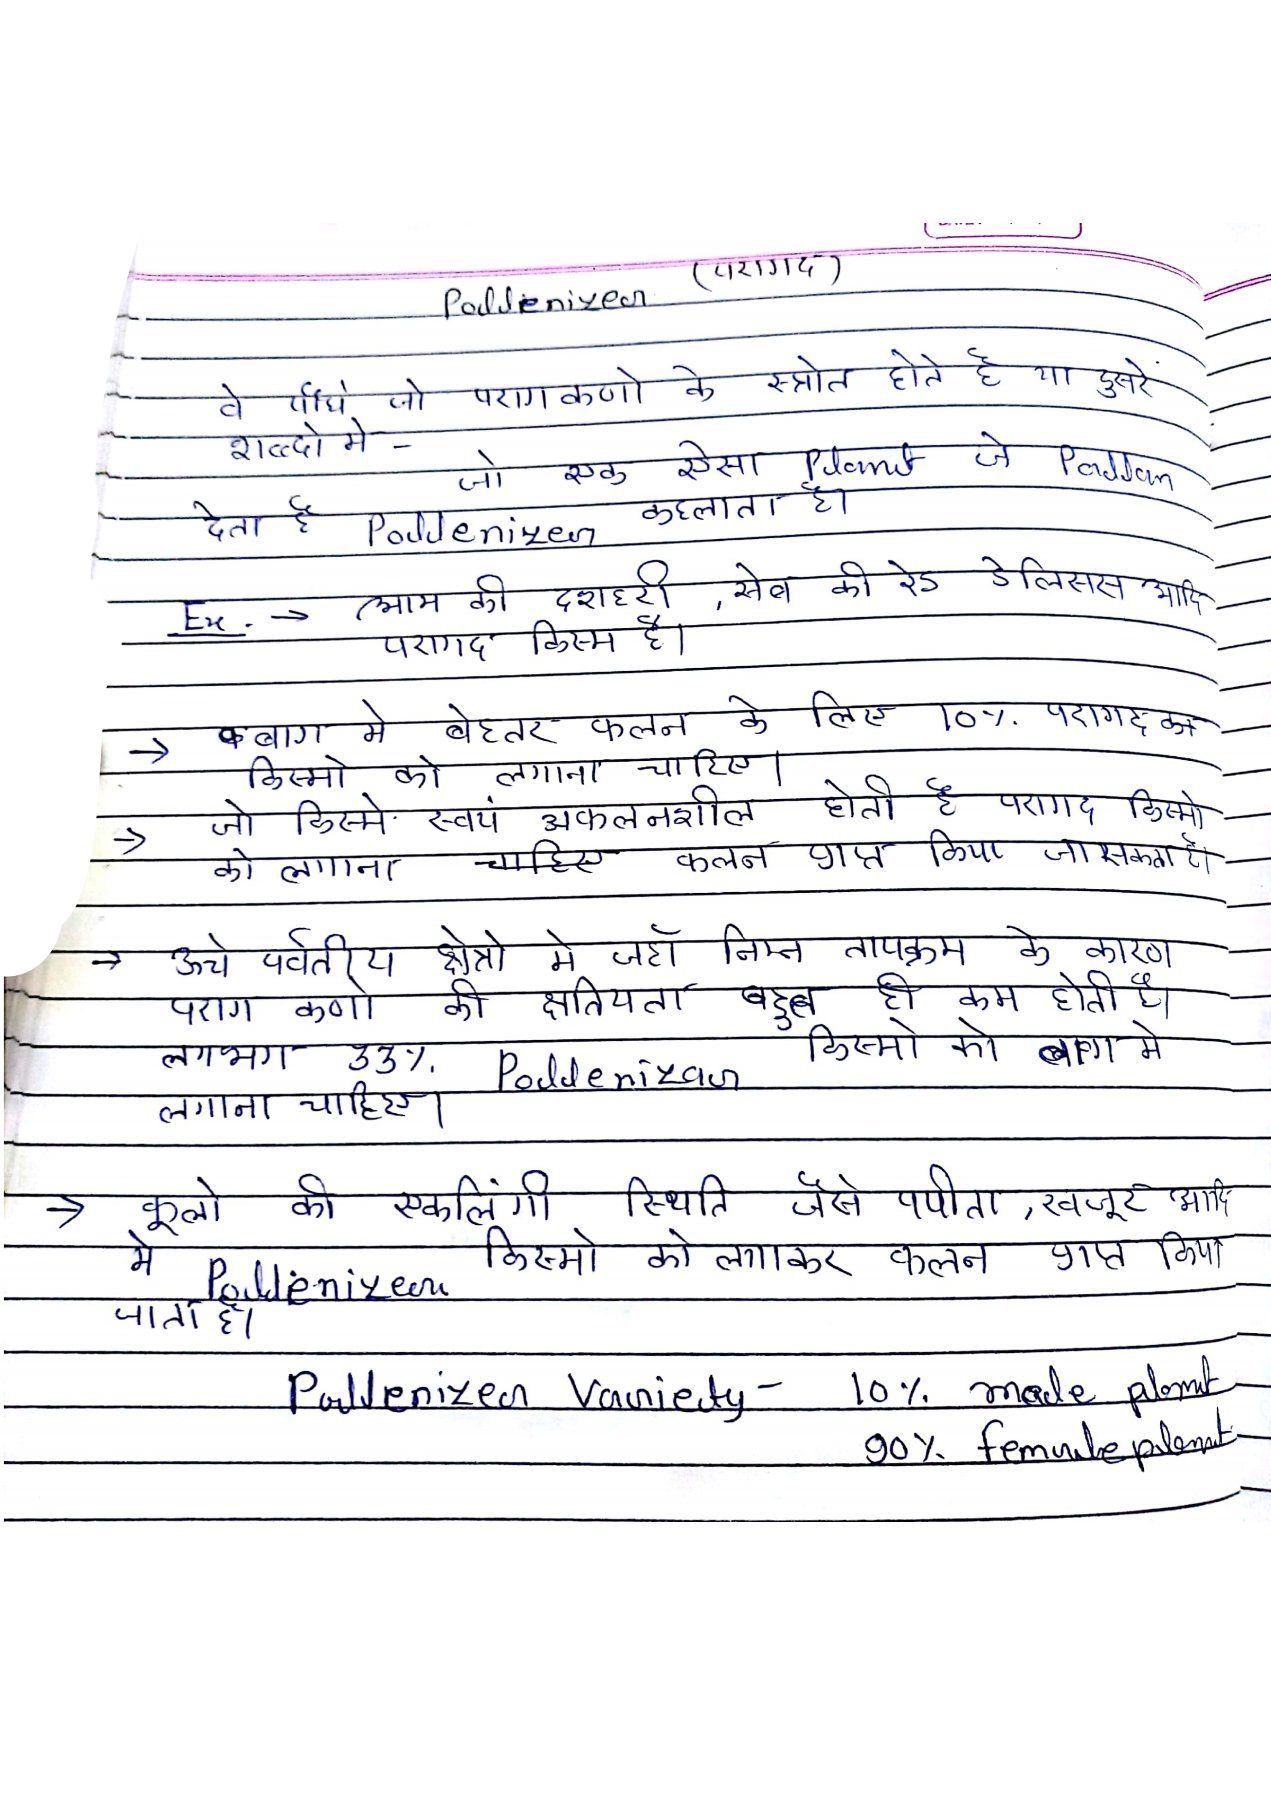 (परागद)
Pollenizer
वे पौधे जो परागकणो के स्त्रोत होते है या दुसरे
शब्दो मे -
जो एक ऐसा Plant जे Pollan
देता है Pollenizer कहलाता है।
Ex. → आम की दशहरी , सेब की रेड डेलिसस आदि
परागद किस्म है।
→ बाग मे बेहतर फलन के लिए 10% परागद
किस्मो को लगाना चाहिए।
→ जो किस्मे स्वयं अफलनशील होती है परागद किस्मो
को लगाना चाहिए फलन प्राप्त किया जा सकता है।
→ ऊचे पर्वतीय क्षेत्रो मे जहाँ निम्न तापक्रम के कारण
पराग कणो की क्षतियता बहुत ही कम होती है।
लगभग 33% Pollenizar किस्मो को बाग मे
लगाना चाहिए।
→ फूलो की एकलिंगी स्थिति जैसे पपीता , खजूर आदि
मे Pollenizer किस्मो को लगाकर फलन प्राप्त किया
जाता है।
Pollenizer Variety - 10% male plant
90% female plant